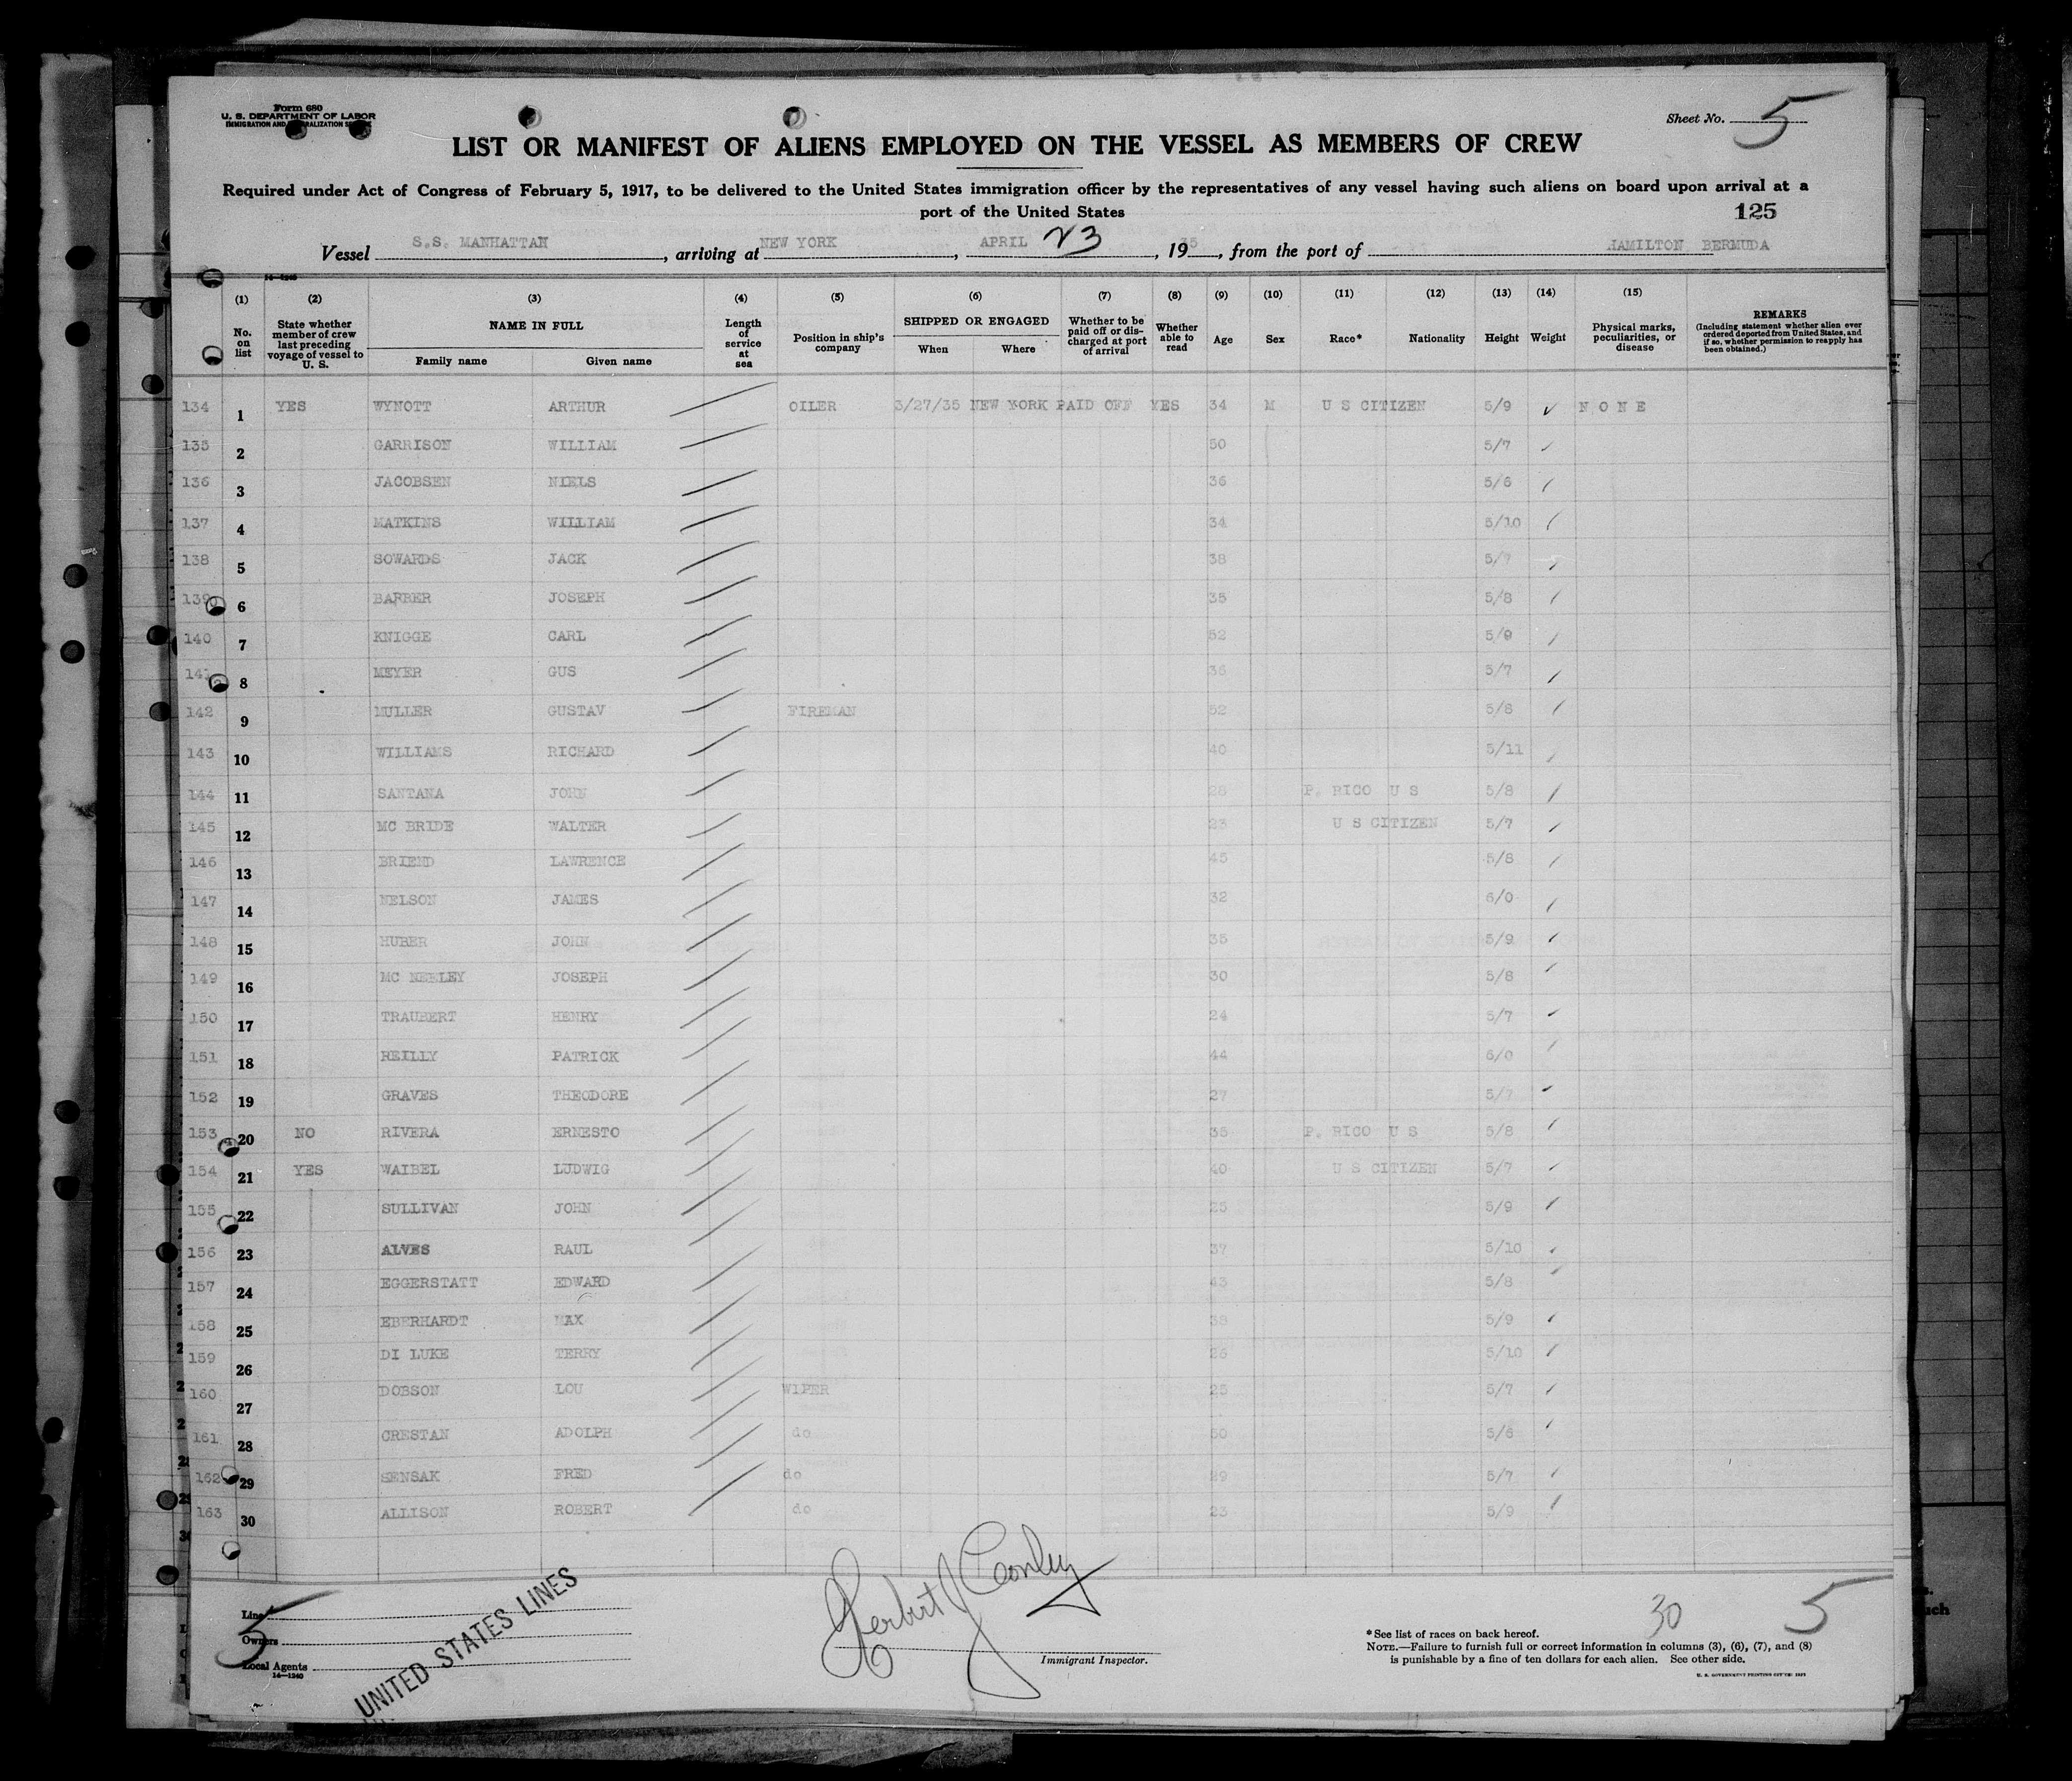 Form 680
U. S. DEPARTMENT OF LABOR
IMMIGRATION AND NATURALIZATION SERVICE
Sheet No. 5
LIST OR MANIFEST OF ALIENS EMPLOYED ON THE VESSEL AS MEMBERS OF CREW
Required under Act of Congress of February 5, 1917, to be delivered to the United States immigration officer by the representatives of any vessel having such aliens on board upon arrival at a
port of the United States
125
Vessel S.S. MANHATTAN, arriving at NEW YORK, APRIL 23, 1935, from the port of HAMILTON BERMUDA
14-1240
(1) (2) (3) (4) (5) (6) (7) (8) (9) (10) (11) (12) (13) (14) (15)
No. on list State whether member of crew last preceding voyage of vessel to U. S. NAME IN FULL Family name Given name Length of service at sea Position in ship's company SHIPPED OR ENGAGED When Where Whether to be paid off or discharged at port of arrival Whether able to read Age Sex Race* Nationality Height Weight Physical marks, peculiarities, or disease REMARKS (Including statement whether alien ever ordered deported from United States, and if so, whether permission to reapply has been obtained.)
134 1 YES WYNOTT ARTHUR OILER 3/27/35 NEW YORK PAID OFF YES 34 M U S CITIZEN 5/9 NONE
135 2 GARRISON WILLIAM 50 5/7
136 3 JACOBSEN NIELS 36 5/6
137 4 MATKINS WILLIAM 34 5/10
138 5 SOWARDS JACK 38 5/7
139 6 BARBER JOSEPH 35 5/8
140 7 KNIGGE CARL 52 5/9
141 8 MEYER GUS 36 5/7
142 9 MULLER GUSTAV FIREMAN 52 5/8
143 10 WILLIAMS RICHARD 40 5/11
144 11 SANTANA JOHN 28 P. RICO U S 5/8
145 12 MC BRIDE WALTER 23 U S CITIZEN 5/7
146 13 BRIEND LAWRENCE 45 5/8
147 14 NELSON JAMES 32 6/0
148 15 HUBER JOHN 35 5/9
149 16 MC NEELEY JOSEPH 30 5/8
150 17 TRAUBERT HENRY 24 5/7
151 18 REILLY PATRICK 44 6/0
152 19 GRAVES THEODORE 27 5/7
153 20 NO RIVERA ERNESTO 35 P. RICO U S 5/8
154 21 YES WAIBEL LUDWIG 40 U S CITIZEN 5/7
155 22 SULLIVAN JOHN 25 5/9
156 23 ALVES RAUL 37 5/10
157 24 EGGERSTATT EDWARD 43 5/8
158 25 EBERHARDT MAX 38 5/9
159 26 DI LUKE TERRY 26 5/10
160 27 DOBSON LOU WIPER 25 5/7
161 28 CRESTAN ADOLPH do 50 5/6
162 29 SENSAK FRED do 29 5/7
163 30 ALLISON ROBERT do 23 5/9
Line
Owners
Local Agents
14-1240
5
UNITED STATES LINES
Herbert J Conley
Immigrant Inspector.
30
5
*See list of races on back hereof.
NOTE.—Failure to furnish full or correct information in columns (3), (6), (7), and (8)
is punishable by a fine of ten dollars for each alien. See other side.